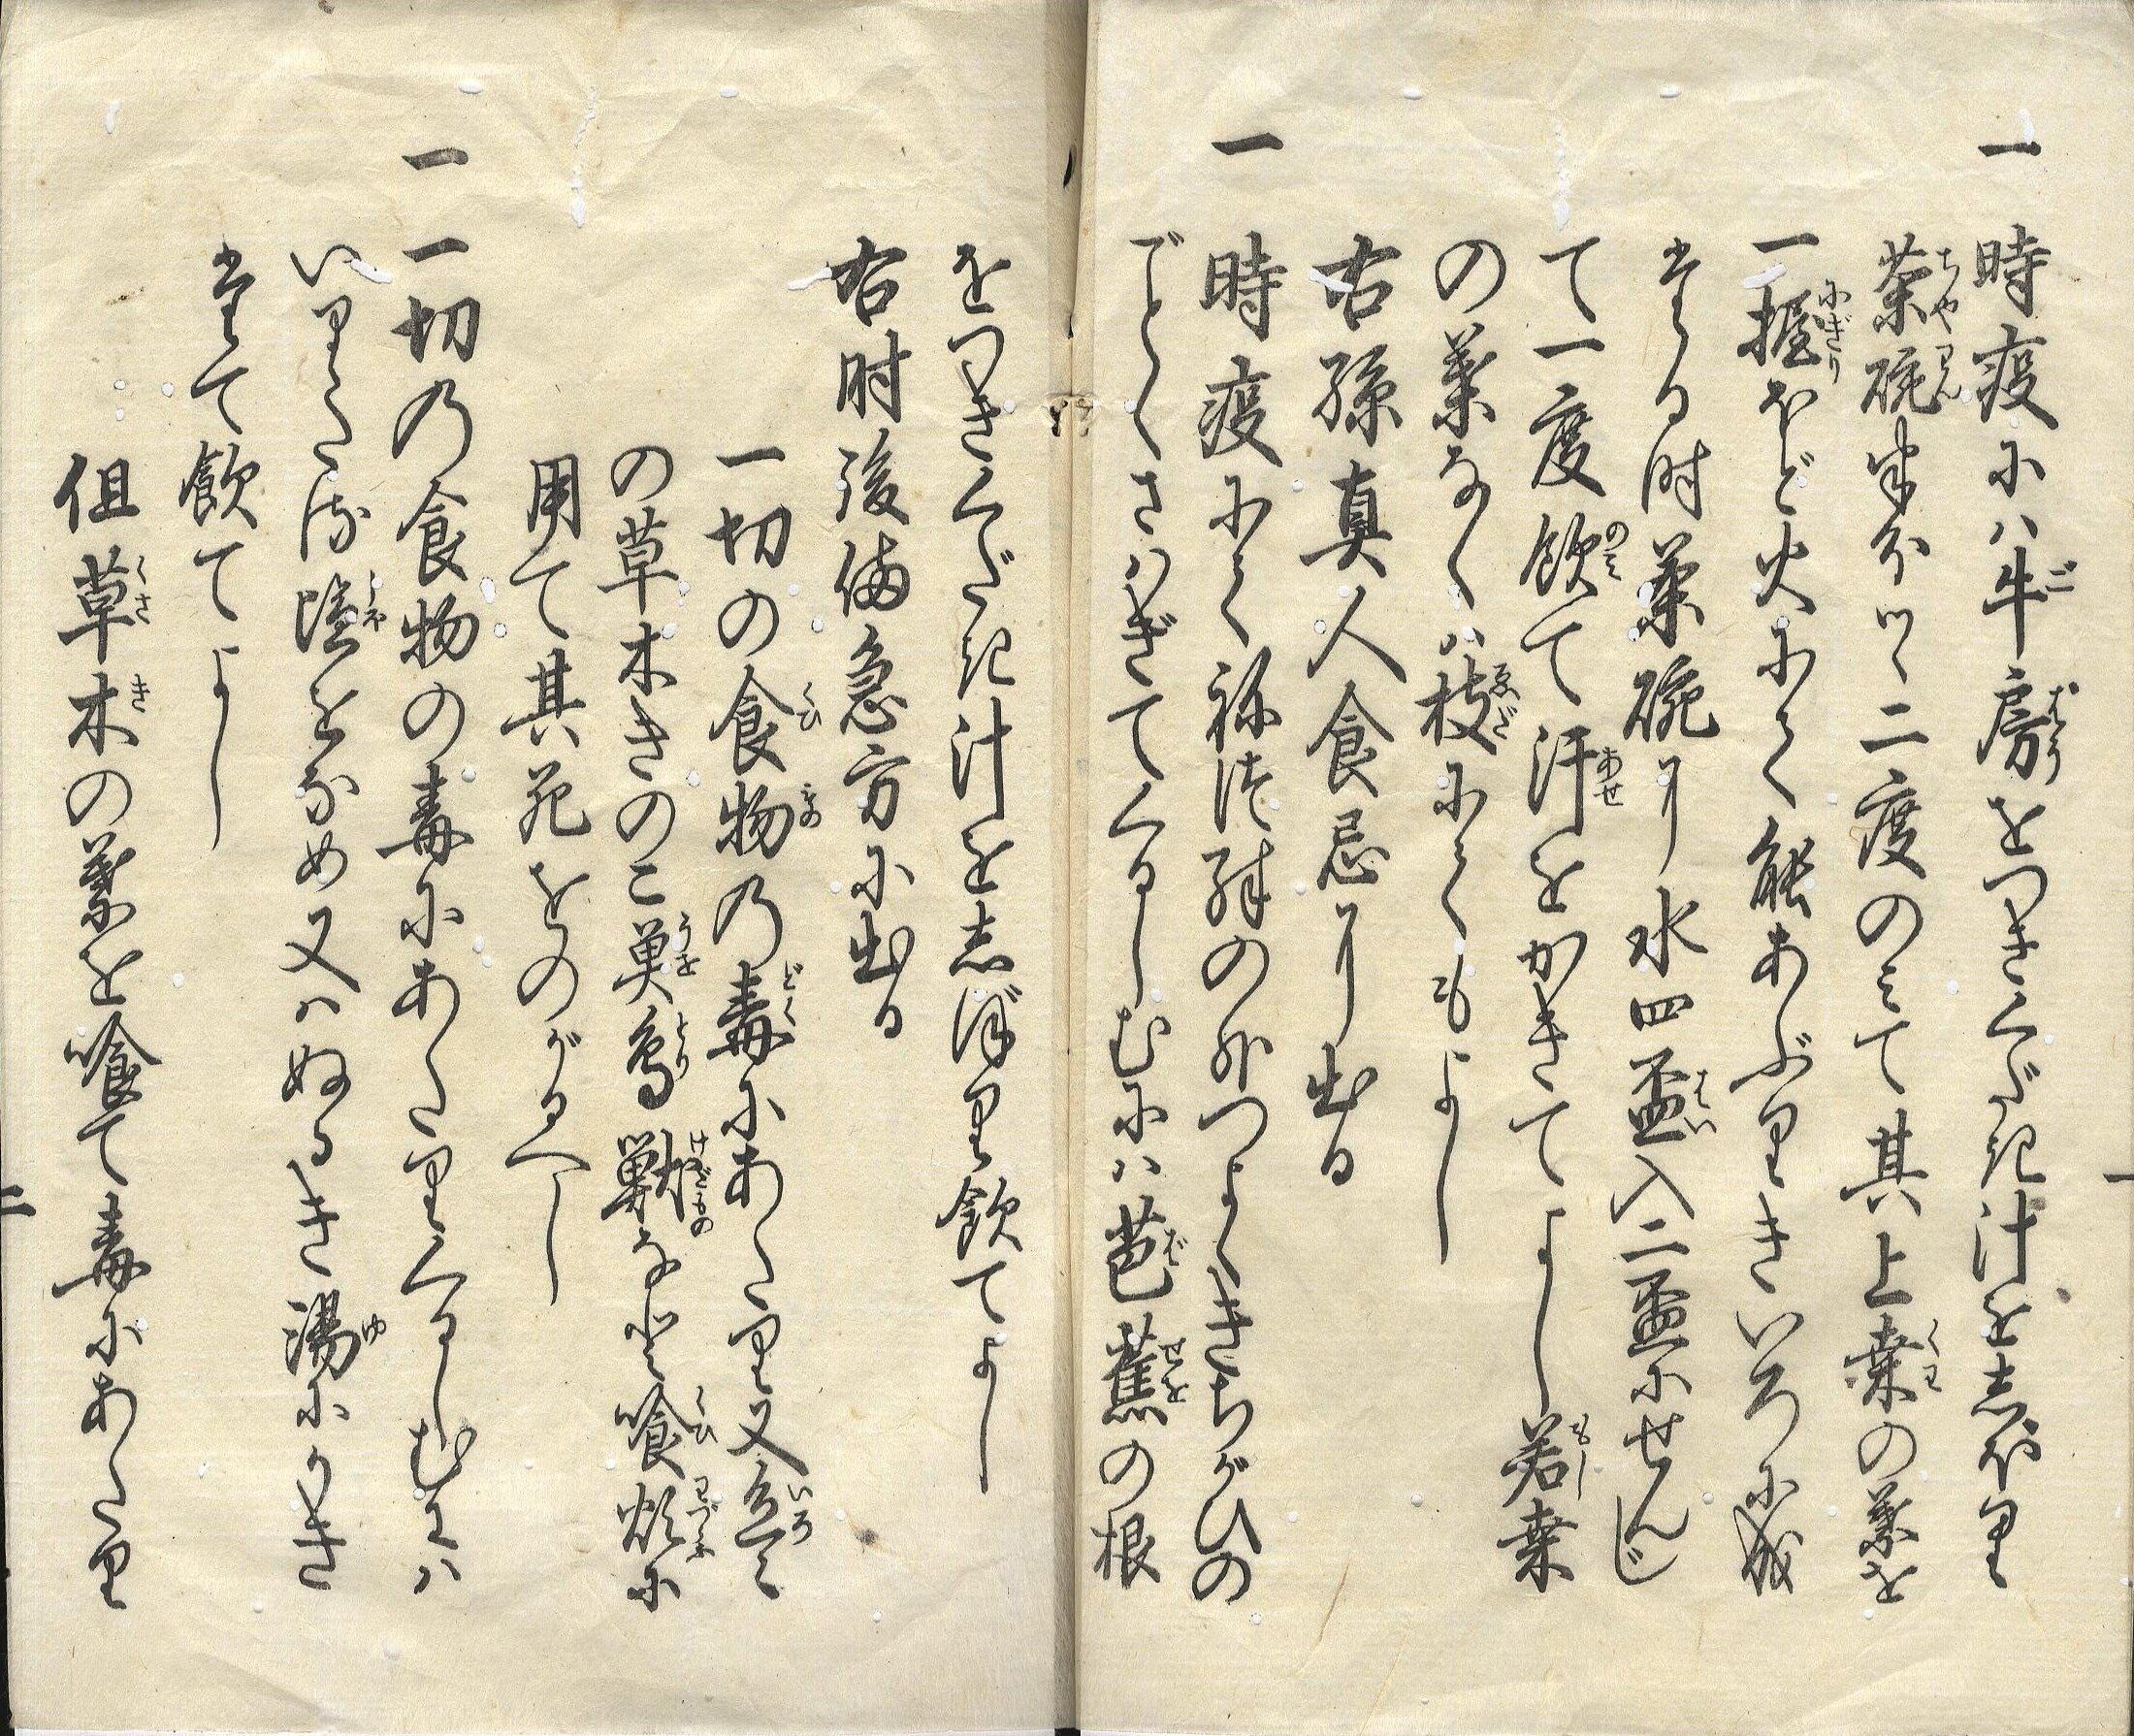 一 時疫にハ牛房をつきくだき汁をしぼり
茶碗半分ツヽ二度のみて其上桑の葉を
一握ほど火にてよくあぶりきいろに成
たる時茶碗に水四盃入二盃にせんじ
て一度飲て汗をかきてよし若桑
の葉なくハ枝にてもよし
右孫真人食忌に出る
一 時疫にてねつ殊の外つよくきちがひの
ごとくさハぎてくるしむにハ芭蕉の根
をつきくだき汁をしぼり飲てよし
右肘後備急方に出る
一切の食物の毒にあたり又色々
の草木きのこ魚鳥獣など喰煩に
用て其死をのがるべし
一 一切の食物の毒にあたりくるしむにハ
いりたる塩をなめ又ハぬるき湯にかき
たて飲てよし
但草木の葉を喰て毒にあたり
一
二